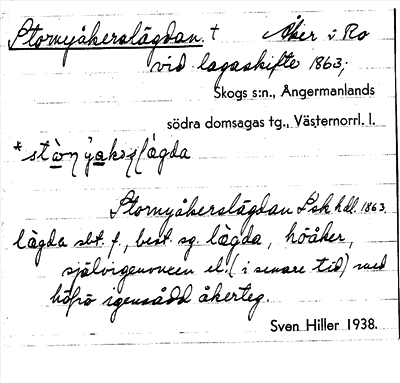 Stornyåkerslägdan. † Åker i Ro
vid lagaskifte 1863;
Skogs s:n., Ångermanlands
södra domsagas tg., Västernorrl. l.
Stornyåkerslägdan Lsk hdl. 1863.
lägda sbt. f., best. sg. lägda, höåker,
självigenvuxen el. (i senare tid) med
höfrö igensådd åkerteg.
Sven Hiller 1938.